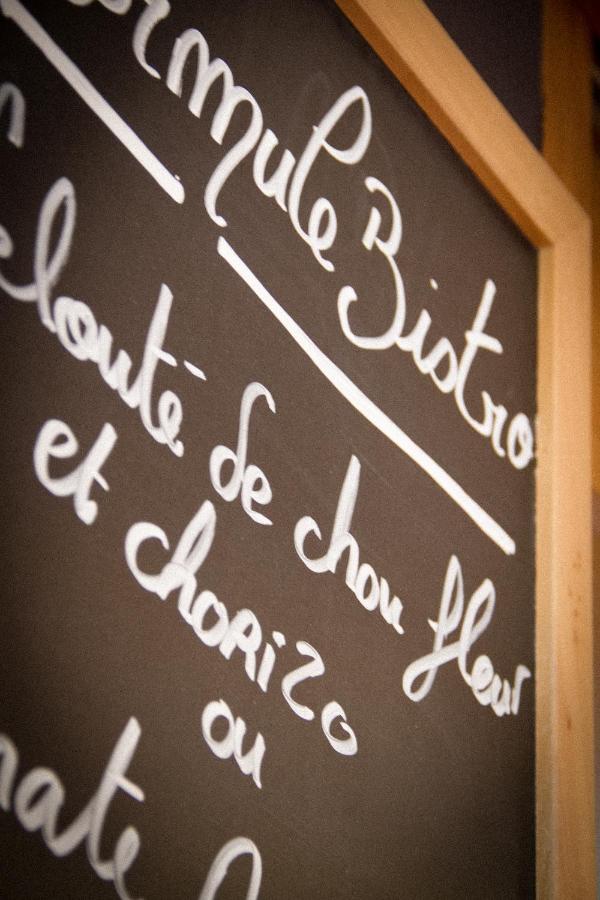 ormule Bistro
elouté de chou fleur
et choRizo
ou
mate